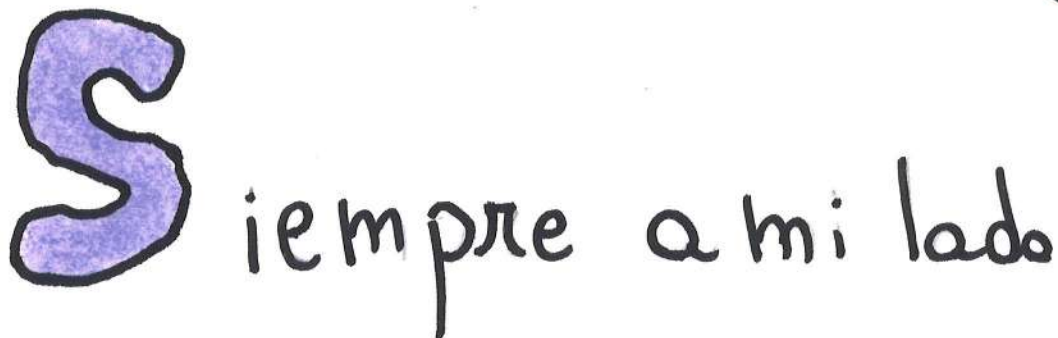 Siempre a mi lado